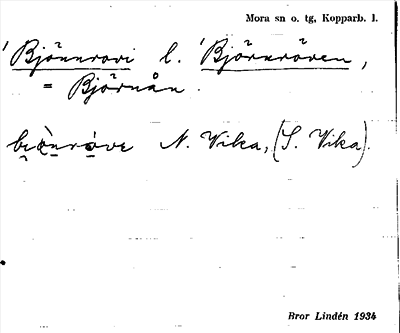 Mora sn o. tg, Kopparb. l.
'Björnrovi l. 'Björnröven,
= Björnån.
N. Vika, (S. Vika).
Bror Lindén 1934